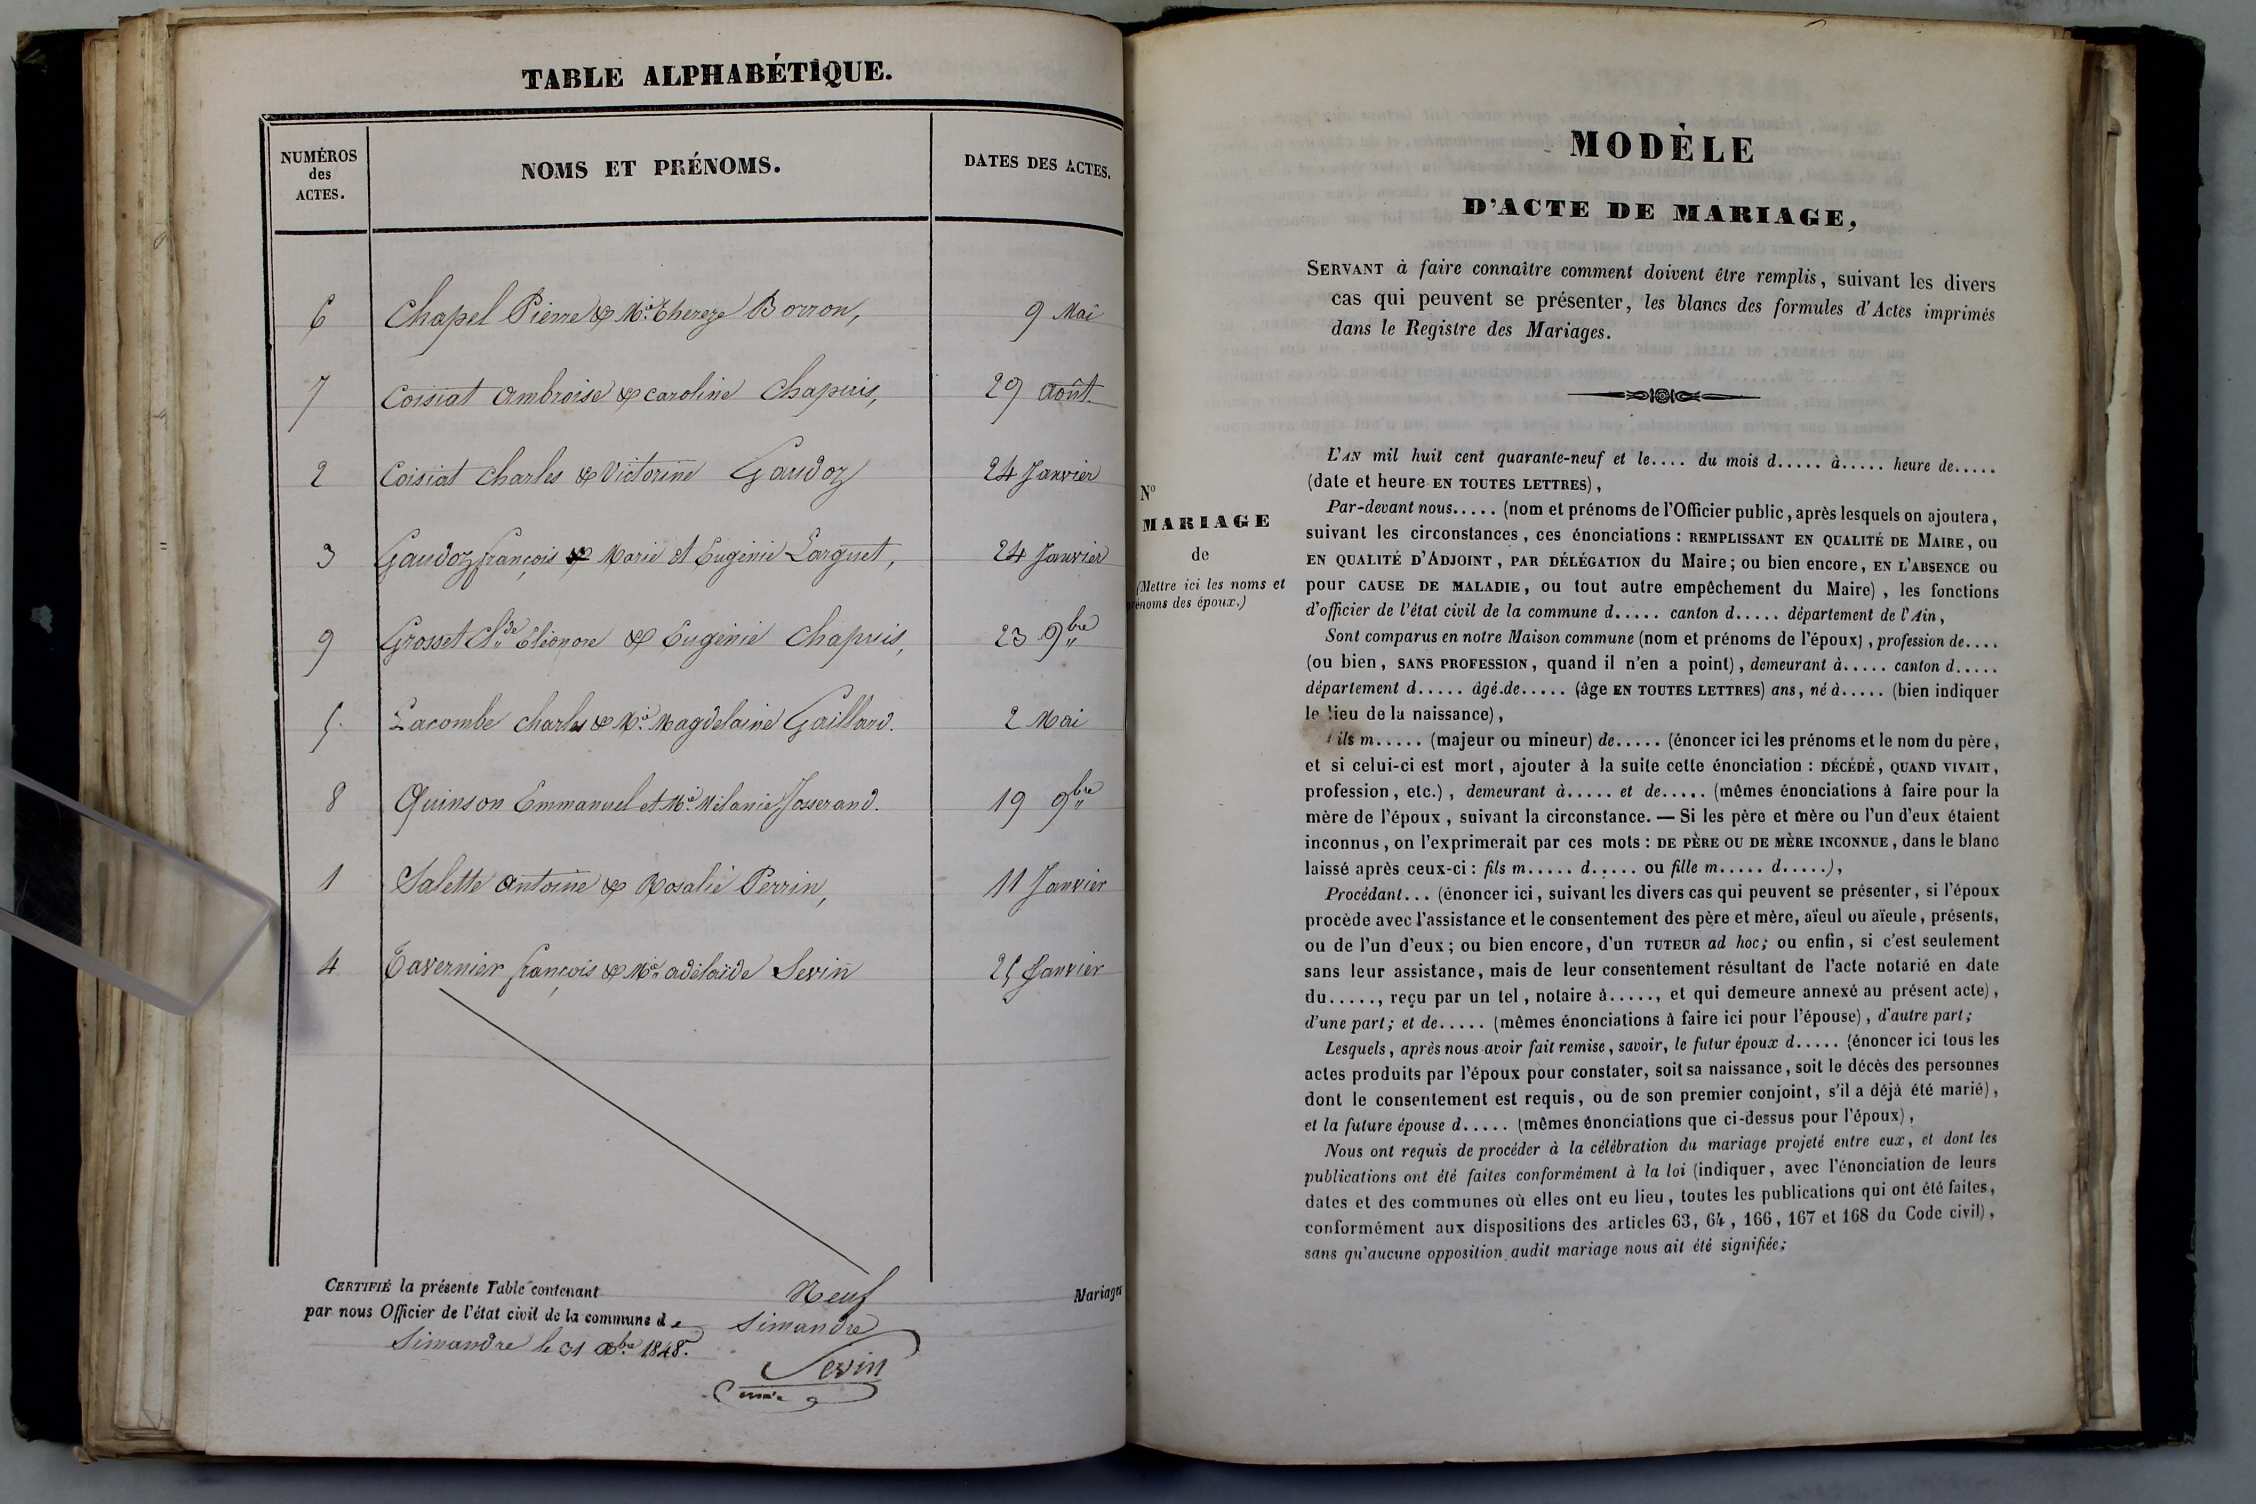 TABLE ALPHABÉTIQUE.
NUMÉROS
des
ACTES.
NOMS ET PRÉNOMS.
DATES DES ACTES.
6 Chapel Pierre & Mie Thereze Borron, 9 Mai
7 Coisiat ambroise & caroline Chapuis, 29 août
2 Coisiat Charles & Victorine Gaudoz 24 Janvier
3 Gaudoz françois & Marie et Eugénie Larguet, 24 Janvier
9 Grosset Clde Eléonore & Eugénie Chapuis, 23 9bre
5 Lacombe Charles & Mie Magdelaine Gaillard. 2 Mai
8 Quinson Emmanuel et Mie Mélanie Josserand. 19 9bre
1 Salette antoine & Rosalie Perrin, 11 Janvier
4 Tavernier françois & Mie adélaïde Sevin 25 Janvier
CERTIFIÉ la présente Table contenant Neuf Mariages
par nous Officier de l'état civil de la commune de Simandre
Simandre le 31 Xbre 1848.
Sevin
maire
MODÈLE
D'ACTE DE MARIAGE,
SERVANT à faire connaître comment doivent être remplis, suivant les divers
cas qui peuvent se présenter, les blancs des formules d'Actes imprimés
dans le Registre des Mariages.
No
MARIAGE
de
(Mettre ici les noms et
prénoms des époux.)
L'AN mil huit cent quarante-neuf et le.... du mois d..... à..... heure de.....
(date et heure EN TOUTES LETTRES),
Par-devant nous..... (nom et prénoms de l'Officier public, après lesquels on ajoutera,
suivant les circonstances, ces énonciations : REMPLISSANT EN QUALITÉ DE MAIRE, ou
EN QUALITÉ D'ADJOINT, PAR DÉLÉGATION du Maire; ou bien encore, EN L'ABSENCE ou
pour CAUSE DE MALADIE, ou tout autre empêchement du Maire), les fonctions
d'officier de l'état civil de la commune d..... canton d..... département de l'Ain,
Sont comparus en notre Maison commune (nom et prénoms de l'époux), profession de....
(ou bien, SANS PROFESSION, quand il n'en a point), demeurant à..... canton d.....
département d..... âgé de..... (âge EN TOUTES LETTRES) ans, né à..... (bien indiquer
le lieu de la naissance),
fils m..... (majeur ou mineur) de..... (énoncer ici les prénoms et le nom du père,
et si celui-ci est mort, ajouter à la suite cette énonciation : DÉCÉDÉ, QUAND VIVAIT,
profession, etc.), demeurant à..... et de..... (mêmes énonciations à faire pour la
mère de l'époux, suivant la circonstance. — Si les père et mère ou l'un d'eux étaient
inconnus, on l'exprimerait par ces mots : DE PÈRE OU DE MÈRE INCONNUE, dans le blanc
laissé après ceux-ci : fils m..... d..... ou fille m..... d.....),
Procédant... (énoncer ici, suivant les divers cas qui peuvent se présenter, si l'époux
procède avec l'assistance et le consentement des père et mère, aïeul ou aïeule, présents,
ou de l'un d'eux; ou bien encore, d'un TUTEUR ad hoc; ou enfin, si c'est seulement
sans leur assistance, mais de leur consentement résultant de l'acte notarié en date
du....., reçu par un tel, notaire à....., et qui demeure annexé au présent acte),
d'une part; et de..... (mêmes énonciations à faire ici pour l'épouse), d'autre part;
Lesquels, après nous avoir fait remise, savoir, le futur époux d..... (énoncer ici tous les
actes produits par l'époux pour constater, soit sa naissance, soit le décès des personnes
dont le consentement est requis, ou de son premier conjoint, s'il a déjà été marié),
et la future épouse d..... (mêmes énonciations que ci-dessus pour l'époux),
Nous ont requis de procéder à la célébration du mariage projeté entre eux, et dont les
publications ont été faites conformément à la loi (indiquer, avec l'énonciation de leurs
dates et des communes où elles ont eu lieu, toutes les publications qui ont été faites,
conformément aux dispositions des articles 63, 64, 166, 167 et 168 du Code civil),
sans qu'aucune opposition audit mariage nous ait été signifiée;